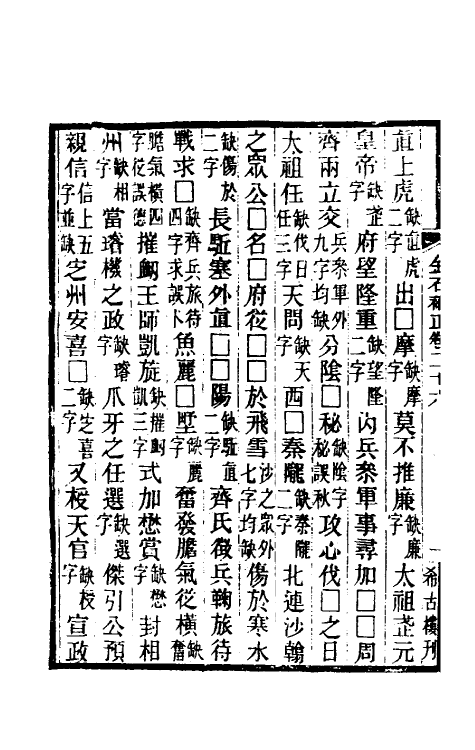 金石補正卷二十六 一 希古樓刊
直上虎缺直虎二字出□摩缺摩字莫不推廉缺廉字太祖𦬇元
皇帝缺𦬇字府望隆重缺望隆二字內兵叅軍事尋加□□周
齊兩立交兵叅軍外九字均缺分陰□秘缺陰字秘誤秋攻心伐□之日
太祖任缺伐日任三字天問缺天字西□秦隴缺秦隴二字北連沙翰
之眾公□名□府從□□於飛雪沙之眾外七字均缺傷於寒水
缺傷於二字長駈塞外直□□陽缺駈直二字齊氏徵兵鞠旅待
戰求□缺齊兵旅待四字求誤木魚麗□墅缺麗字奮發膽氣從橫缺奮
膽氣橫四字從誤德摧衂王師凱旋缺摧衂凱三字式加懋賞缺懋字封相
州缺相字當璿機之政缺璿字爪牙之任選缺選字傑引公預
親信信上五字並缺芝州安喜□缺芝喜二字又授天官缺授字宣政